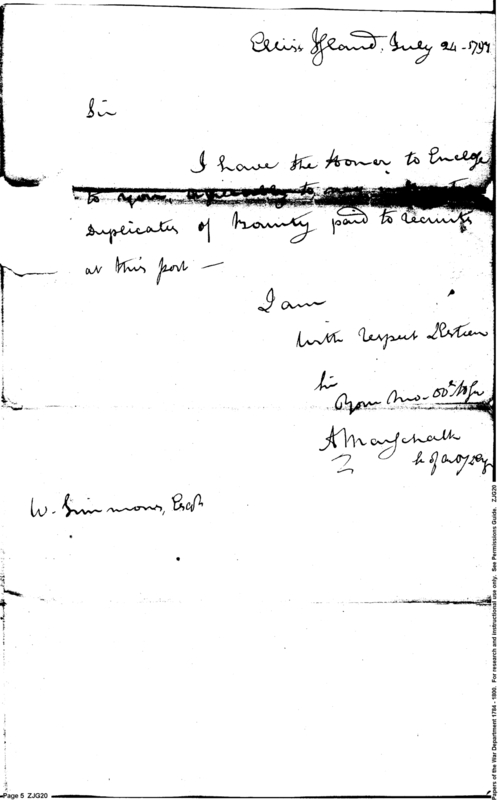 Ellis's Island, July 24 - 1797
Sir
I have the Honor, to Enclose
to you, agreeably to my
Duplicates of Bounty paid to recruits
at this post —
I am
With respect & Esteem
Sir
Your Mo. Obt
A Marschalk
W. Simmons, Esqr
Page 5 ZJG20
Papers of the War Department 1784 - 1800. For research and instructional use only. See Permissions Guide. ZJG20